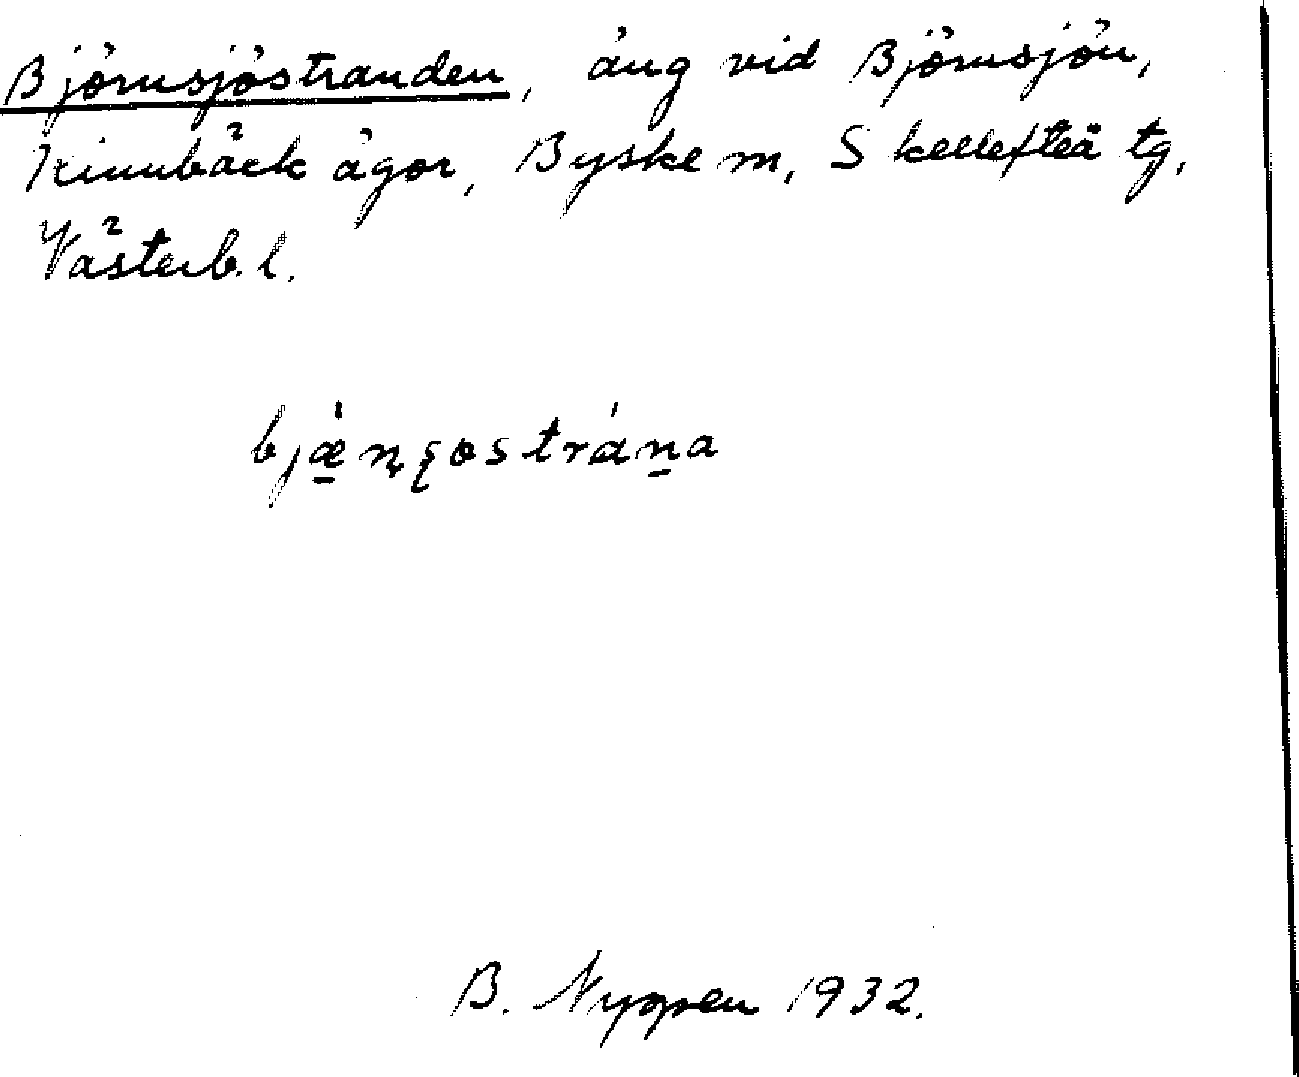 Björnsjöstranden, äng vid Björnsjön,
Kinnbäck ägor, Byske sn, Skellefteå tg,
Västerb. l.
bjǽ̲ṇʂostrán̲a
B. Nyppen 1932.